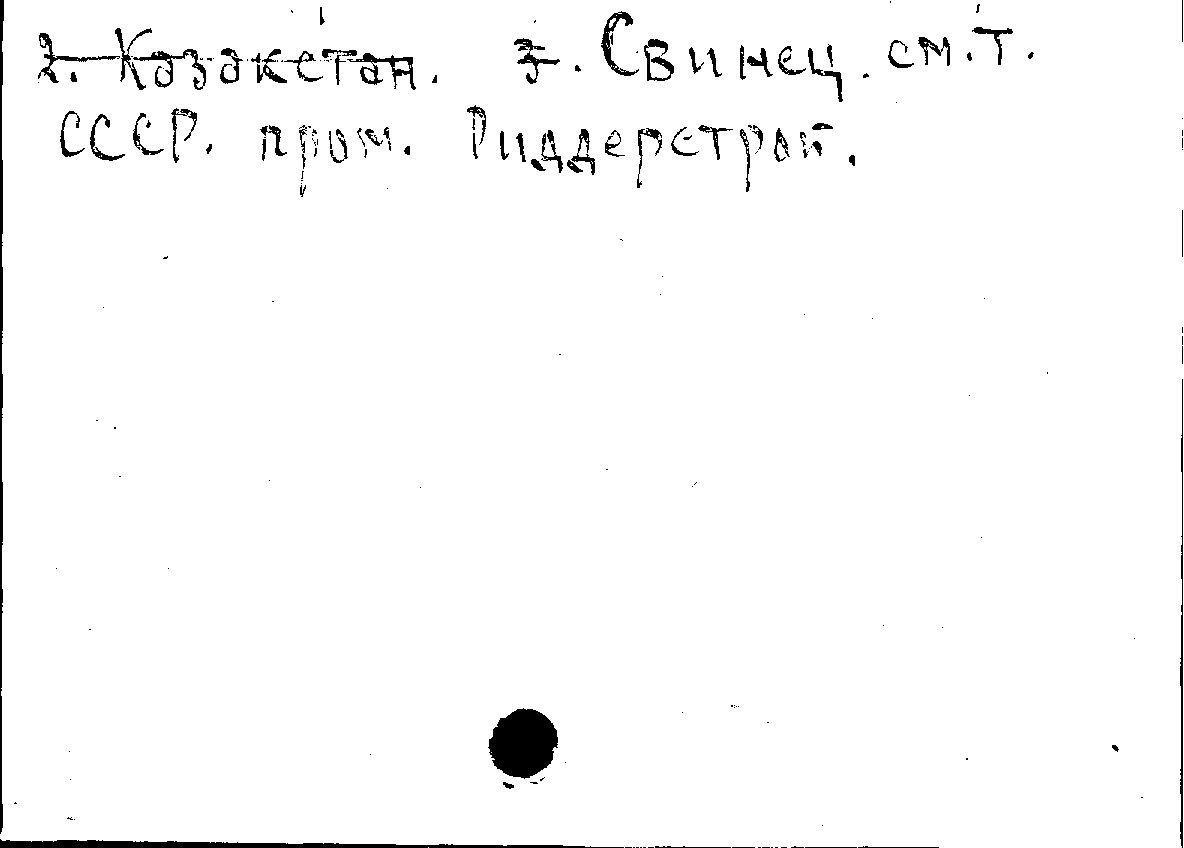 2. Казакстан. 3. Свинец. см. т.
СССР. пром. Риддерстрой.